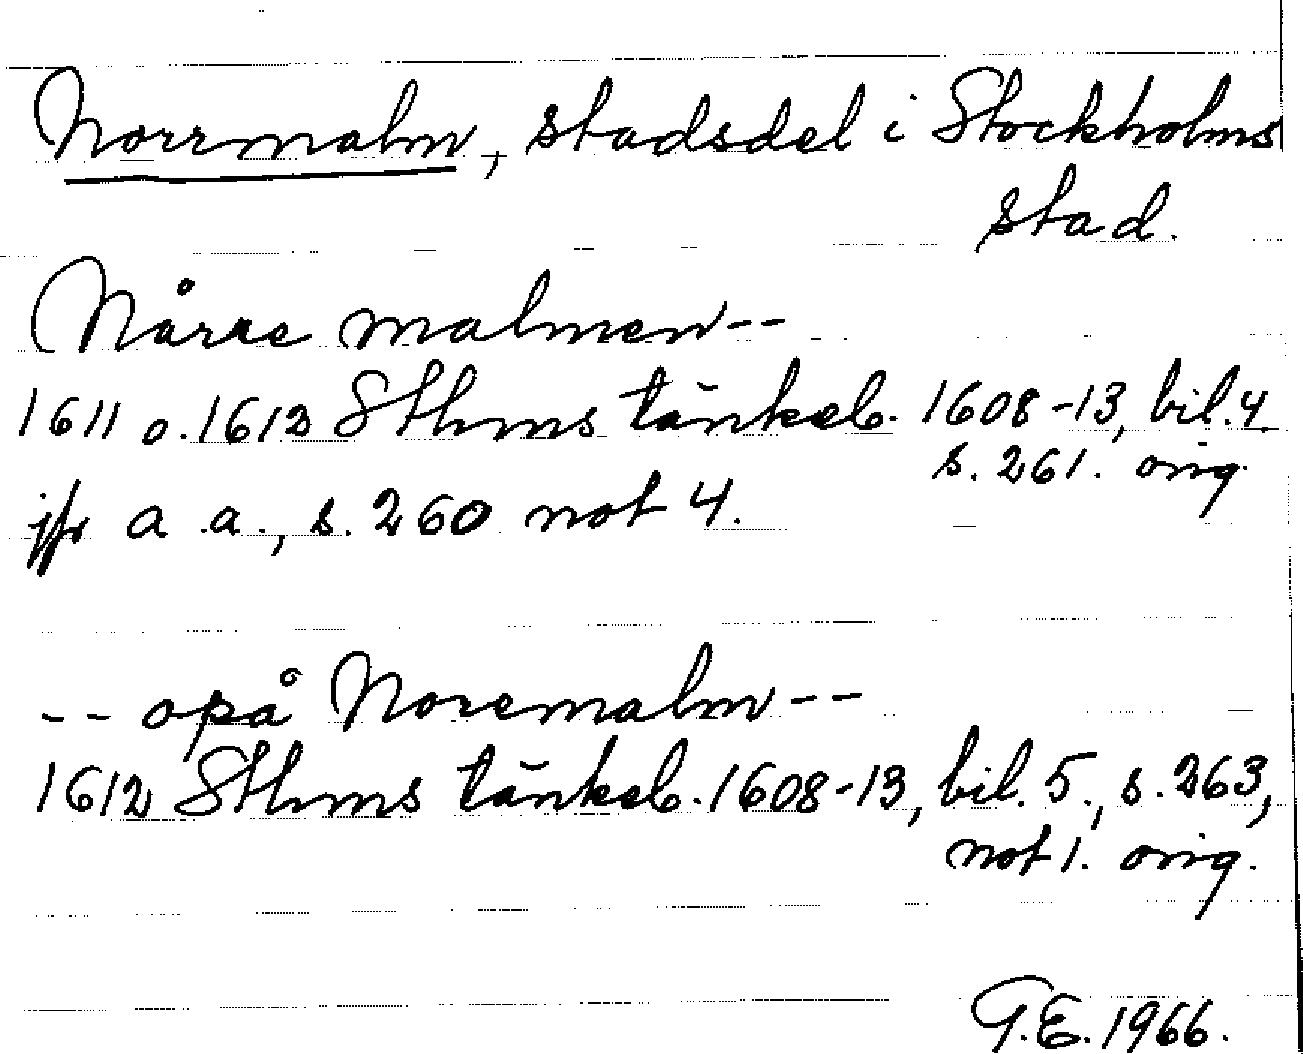 Norrmalm, stadsdel i Stockholms
stad.
Nårre malmen--
1611 o. 1612 Sthms tänkeb. 1608-13, bil. 4
s. 261. orig.
jfr a. a., s. 260 not 4.
-- opå Norremalm--
1612 Sthms tänkeb. 1608-13, bil. 5., s. 263,
not 1. orig.
G.E. 1966.